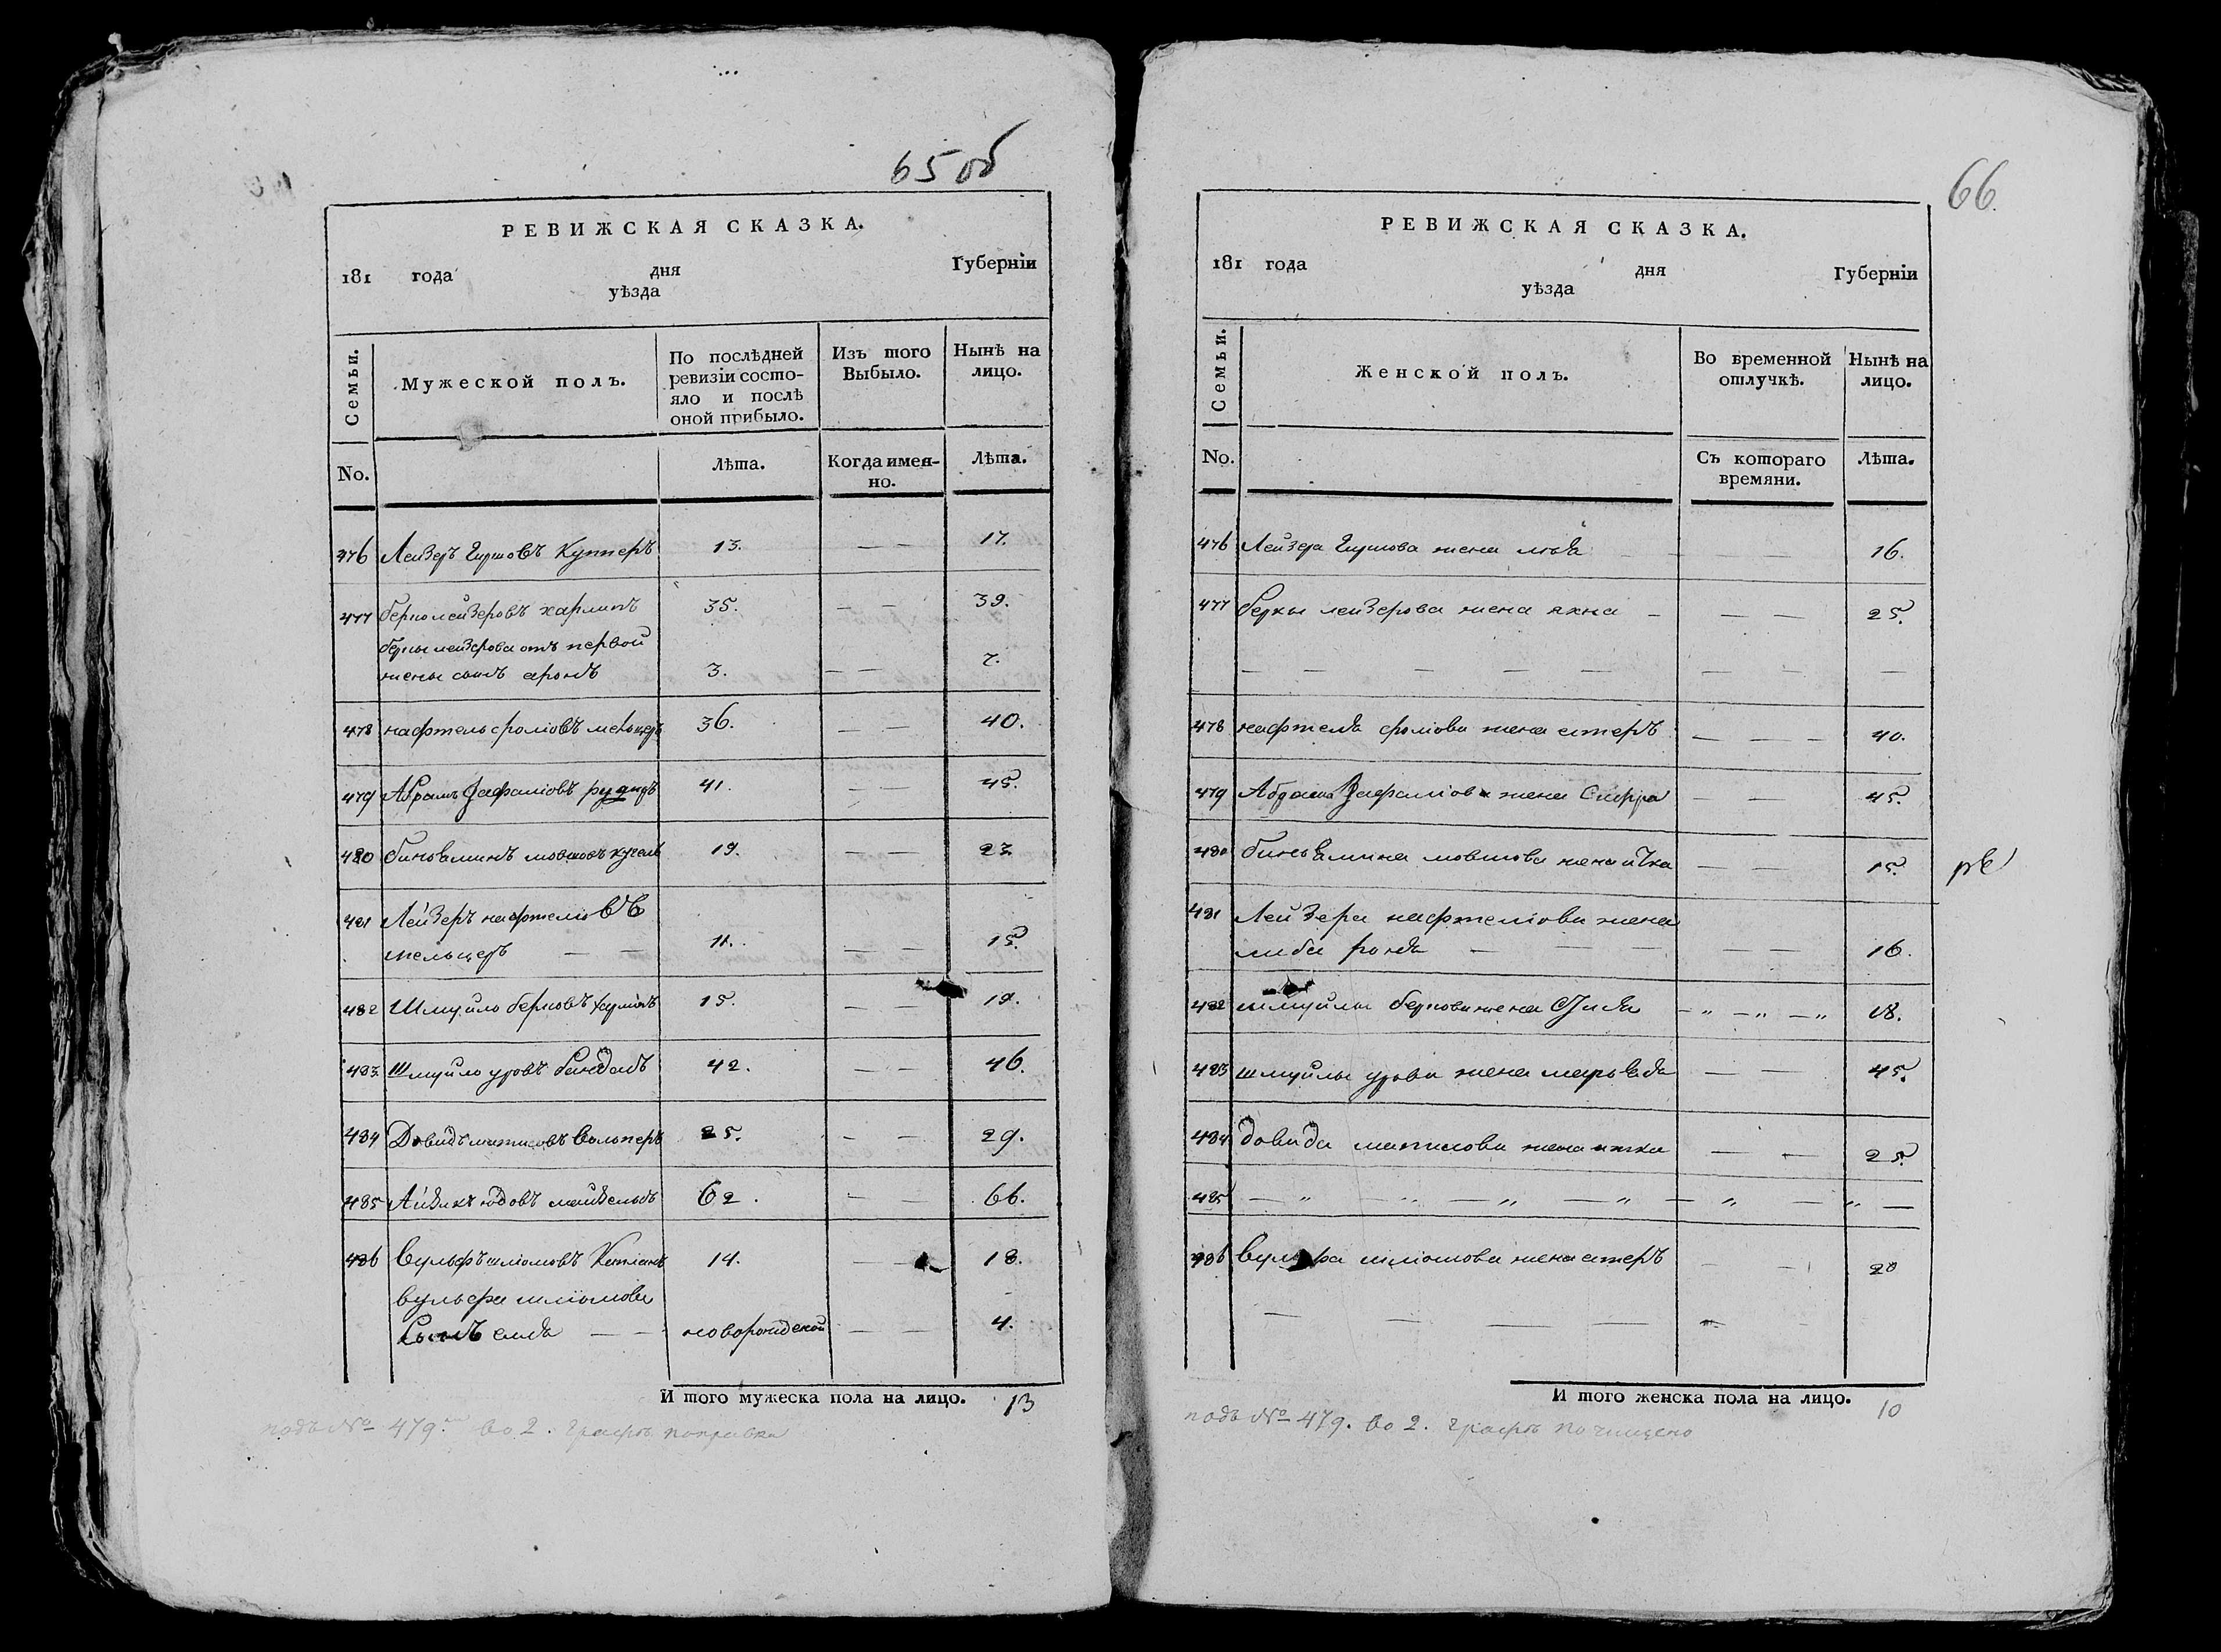 65 об
РЕВИЖСКАЯ СКАЗКА.
181 года дня Губерніи
уѣзда
Семьи. Мужеской полъ. По послѣдней ревизіи состо-яло и послѣ оной прибыло. Изъ того Выбыло. Нынѣ на лицо.
No. Лѣта. Когда имен-но. Лѣта.
476 Лейзеръ Гиршовъ Куптеръ 13. — — 17.
477 берко лейзеровъ харлипъ 35. — — 39.
берки лейзерова отъ первой
жены сынъ аронъ 3. — — 7.
478 нафтель сроліовъ мельцеръ 36. — — 40.
479 Абрамъ Зафраліовъ 41. — — 45.
480 биньяминъ мовшовъ кугель 19. — — 23
481 Лейзеръ нафтеліовъ
мельцеръ — — 11. — — 15.
482 Шмуйло берковъ 15. — — 19.
483 Шмуйло уровъ 42. — — 46.
484 Довидъ матисовъ 25. — — 29.
485 Айзикъ юдовъ 62. — — 66.
486 Вульфъ шліомовъ Капланъ 14. — — 18.
вульфа шліомова
сынъ — — новорожденой — — 4.
И того мужеска пола на лицо. 13
подъ № 479. во 2. графѣ поправка
66.
РЕВИЖСКАЯ СКАЗКА.
181 года дня Губерніи
уѣзда
Семьи. Женской полъ. Во временной отлучкѣ. Нынѣ на лицо.
No. Съ котораго времяни. Лѣта.
476 Лейзера Гиршова жена — — 16.
477 берки лейзерова жена яхна — — — 25.
— — — — — — —
478 нафтеля сроліова жена естеръ — — — 40.
479 Абрама Зафраліова жена Сифра — — 45.
480 биньямина мовшова жена ичка — — 15.
481 Лейзера нафтеліова жена
либа — — — — — 16.
482 шмуйлы беркова жена — „ — „ — „ 18.
483 шмуйлы урова жена — — 45.
484 довида матисова жена итка — — 25.
485 — „ — „ — „ — „ — „ — „ —
486 вульфа шліомова жена естеръ — — 20
— — — —
И того женска пола на лицо. 10
подъ № 479. во 2. графѣ почищено